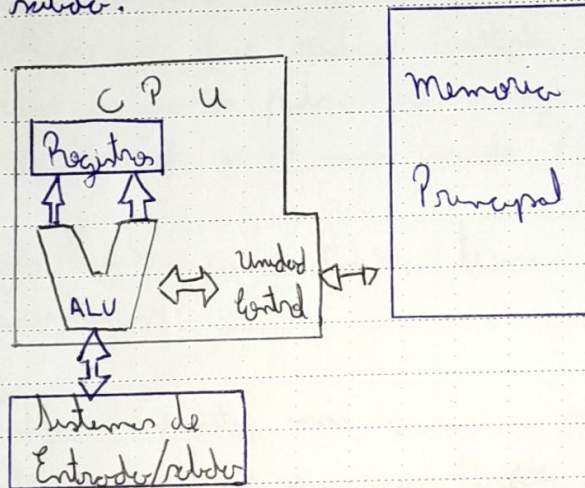 salida.
CPU
Registros
ALU
Unidad
Control
Memoria
Principal
Sistemas de
Entrada/salida